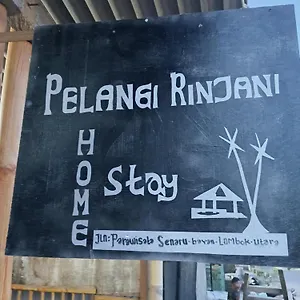 PELANGI RINJANI
HOME
Stay
Jln: Pariwisata Senaru-bayan-Lombok-utara